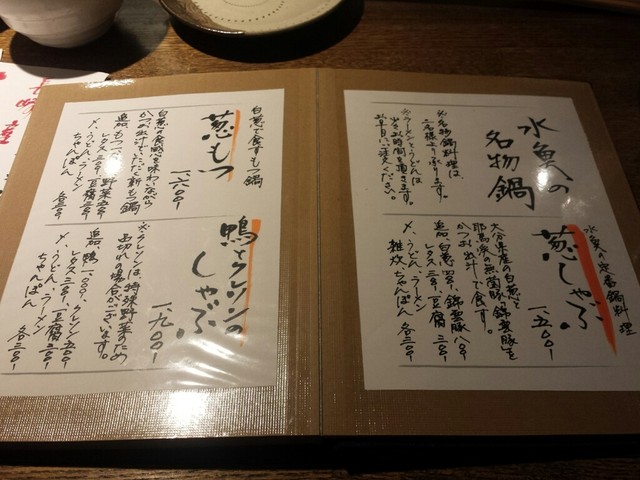 水魚の
名物鍋
※名物鍋料理は、
二名様より承ります。
※ラーメンとうどんは
少々お時間を頂きます。
お早目にご注文ください。
水魚の定番鍋料理
葱しゃぶ
一、五〇〇-
大分県産の白葱と
耶馬渓の無菌豚「錦雲豚」を
かつお出汁で食す。
追加 白葱 四〇〇- 錦雲豚 八〇〇-
レタス 三〇〇- 豆腐 三〇〇-
〆、うどん、ラーメン
雑炊、ちゃんぽん 各三〇〇-
白葱で食すもつ鍋
葱もつ
一、六〇〇-
白葱の食感を味わいながら
かつお出汁でいただく新もつ鍋
追加 もつ 野菜
レタス 三〇〇- 豆腐 三〇〇-
〆、うどん、ラーメン
ちゃんぽん 各三〇〇-
鴨とクレソンの
しゃぶ
一、九〇〇-
※クレソンは、特殊野菜のため
品切れの場合がございます。
追加 鴨 クレソン 五〇〇-
レタス 三〇〇- 豆腐 三〇〇-
〆、うどん、ラーメン
ちゃんぽん 各三〇〇-